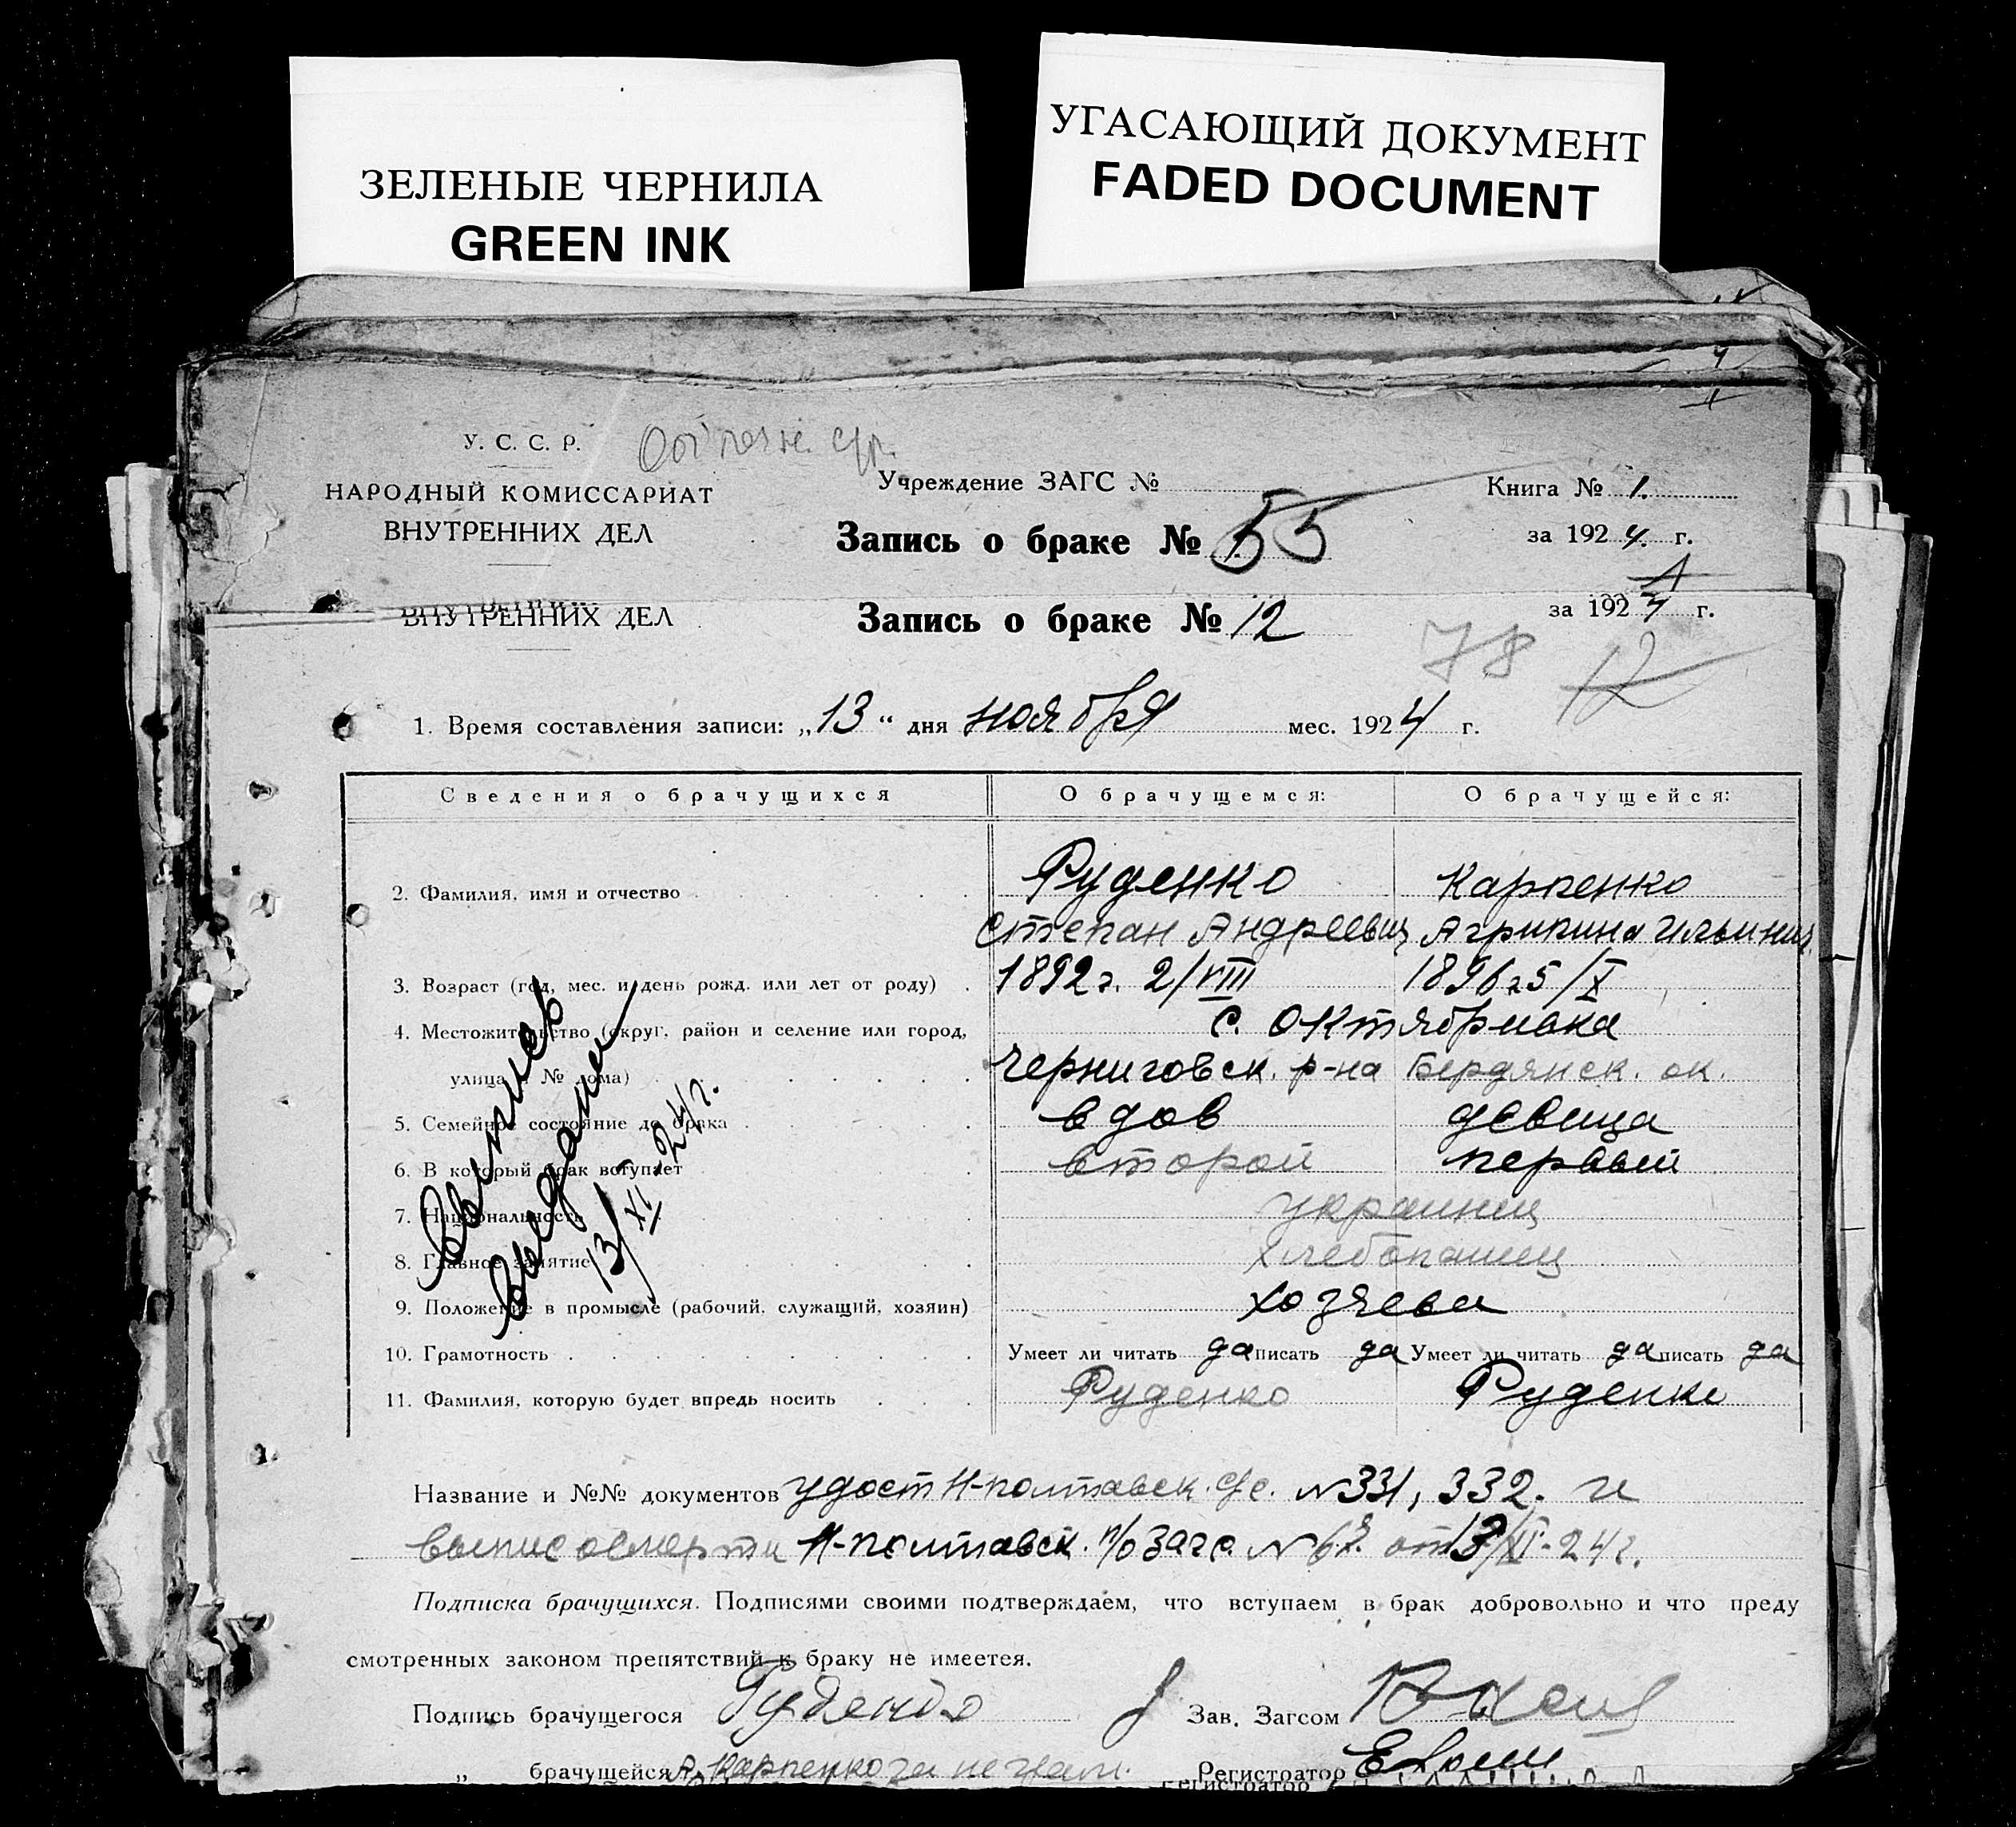 ЗЕЛЕНЫЕ ЧЕРНИЛА
GREEN INK
УГАСАЮЩИЙ ДОКУМЕНТ
FADED DOCUMENT
У. С. С. Р.
НАРОДНЫЙ КОМИССАРИАТ
ВНУТРЕННИХ ДЕЛ
Учреждение ЗАГС №
Книга № 1.
Запись о браке № 55
за 1924. г.
ВНУТРЕННИХ ДЕЛ
Запись о браке № 12
за 1924 г.
78 12
1. Время составления записи: „13“ дня ноября мес. 1924 г.
Сведения о брачущихся О брачущемся: О брачущейся:
2. Фамилия, имя и отчество Руденко Карпенко
Степан Андреевич Агрипина Ильинич
3. Возраст (год, мес. и день рожд. или лет от роду) 1892г. 2/VIII 1896г 5/X
4. Местожительство (округ, район и селение или город, с. Октябриовка
улица и № дома) Черниговск. р-на Бердянск. ок.
5. Семейное состояние до брака вдов девица
6. В который брак вступает второй первый
7. Национальность украинец
8. Главное занятие хлебопашец
9. Положение в промысле (рабочий, служащий, хозяин) хозяева
10. Грамотность Умеет ли читать да писать да Умеет ли читать да писать да
11. Фамилия, которую будет впредь носить Руденко Руденко
Выписъ
выдана
13/XI-24г.
Название и №№ документов удост Н-полтавск. с/с. №331, 332. и
выпис о смерти Н-полтавск. п/о Загс № от 13/XI-24г.
Подписка брачущихся. Подписями своими подтверждаем, что вступаем в брак добровольно и что преду
смотренных законом препятствий к браку не имеется.
Подпись брачущегося Руденко Зав. Загсом
„ брачущейся А. Карпенко за неграм. Регистратор
Регистратор